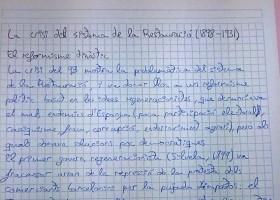 La crisi del sistema de la Restauració (1898-1931)
El reformisme dinàstic
La crisi del 98 mostra la problemàtica del sistema
de la Restauració i va donar lloc a un reformisme
polític basat en les idees regeneracionistes, que denunciava
el mal endèmics d'Espanya (poca participació electoral,
caciquisme, frau, corrupció, endarreriment agrari), però als
quals donava solucions poc democràtiques.
El primer govern regeneracionista (Silvela, 1899) va
fracassar arran de la repressió de la protesta dels
comerciants barcelonins per la pujada d'impostos, el